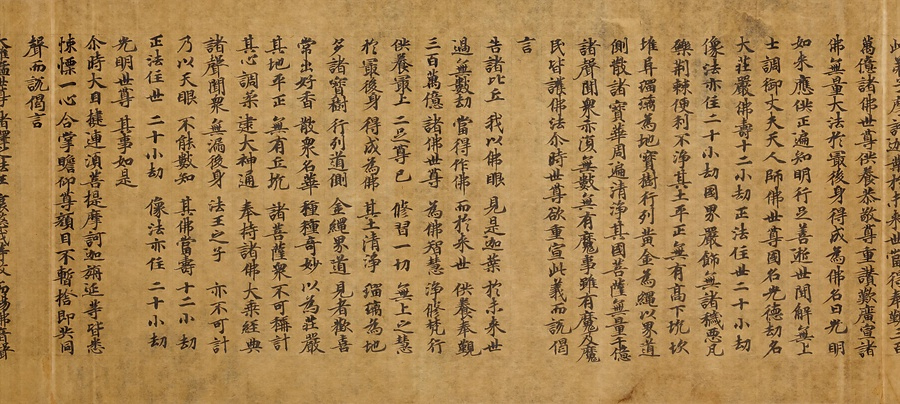 萬億諸佛世尊供養恭敬尊重讚歎廣宣諸
佛無量大法於最後身得成為佛名曰光明
如來應供正遍知明行足善逝世間解無上
士調御丈夫天人師佛世尊國名光德劫名
大莊嚴佛壽十二小劫正法住世二十小劫
像法亦住二十小劫國界嚴飾無諸穢惡瓦
礫荊棘便利不淨其土平正無有高下坑坎
堆阜瑠璃為地寶樹行列黃金為繩以界道
側散諸寶華周遍清淨其國菩薩無量千億
諸聲聞衆亦復無數無有魔事雖有魔及魔
民皆護佛法尒時世尊欲重宣此義而說偈
言
告諸比丘 我以佛眼 見是迦葉 於未來世
過無數劫 當得作佛 而於來世 供養奉覲
三百萬億 諸佛世尊 為佛智慧 淨修梵行
供養最上 二足尊已 修習一切 無上之慧
於最後身 得成為佛 其土清淨 瑠璃為地
多諸寶樹 行列道側 金繩界道 見者歡喜
常出好香 散衆名華 種種奇妙 以為莊嚴
其地平正 無有丘坑 諸菩薩衆 不可稱計
其心調柔 逮大神通 奉持諸佛 大乘經典
諸聲聞衆 無漏後身 法王之子 亦不可計
乃以天眼 不能數知 其佛當壽 十二小劫
正法住世 二十小劫 像法亦住 二十小劫
光明世尊 其事如是
尒時大目揵連湏菩提摩訶迦旃延等皆悉
悚慄一心合掌瞻仰尊顏目不暫捨即共同
聲而說偈言